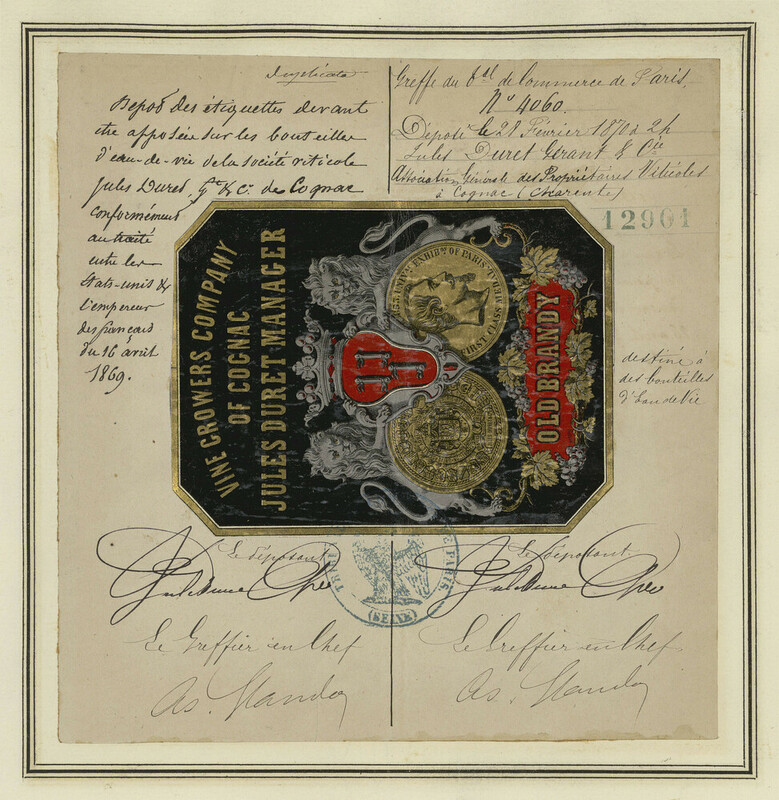 Duplicata
Depot des étiquettes devant
être apposées sur les bouteilles
d'eau-de-vie de la société viticole
Jules Duret, Gt & Cie de Cognac
conformément
au traité
entre les
états-unis &
l'empereur
des français
du 16 avril
1869.
Greffe du Bal de Commerce de Paris
No 4060.
Déposé le 28 Février 1870 à 2h
Jules Duret Gérant & Cie
Association Générale des Propriétaires Viticoles
à Cognac (Charente)
12901
VINE GROWERS COMPANY
OF COGNAC
JULES DURET MANAGER
EXHIBn OF PARIS
FIRST CLASS MEDAL
OLD BRANDY
destiné à
des bouteilles
d'Eau de Vie
Le déposant
Le déposant
DE PARIS
(SEINE)
Le Greffier en Chef
Le Greffier en Chef